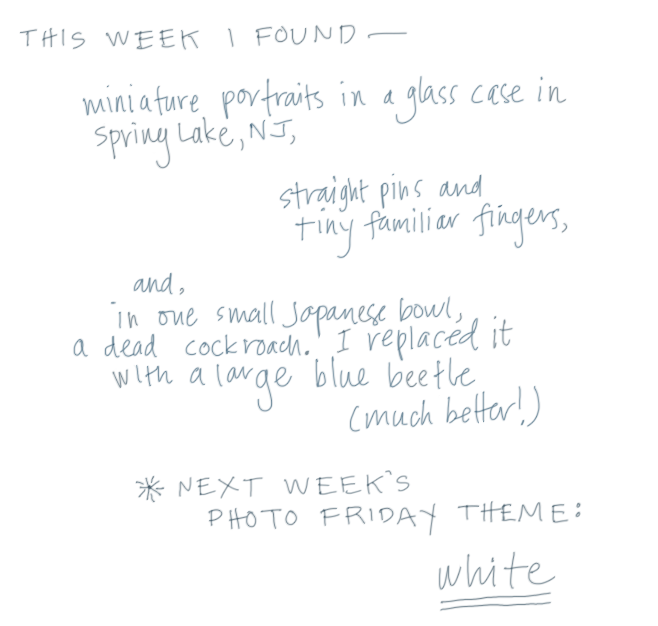 THIS WEEK I FOUND —
miniature portraits in a glass case in
Spring Lake, NJ,
straight pins and
tiny familiar fingers,
and,
in one small Japanese bowl,
a dead cockroach. I replaced it
with a large blue beetle
(much better!)
* NEXT WEEK'S
PHOTO FRIDAY THEME:
white